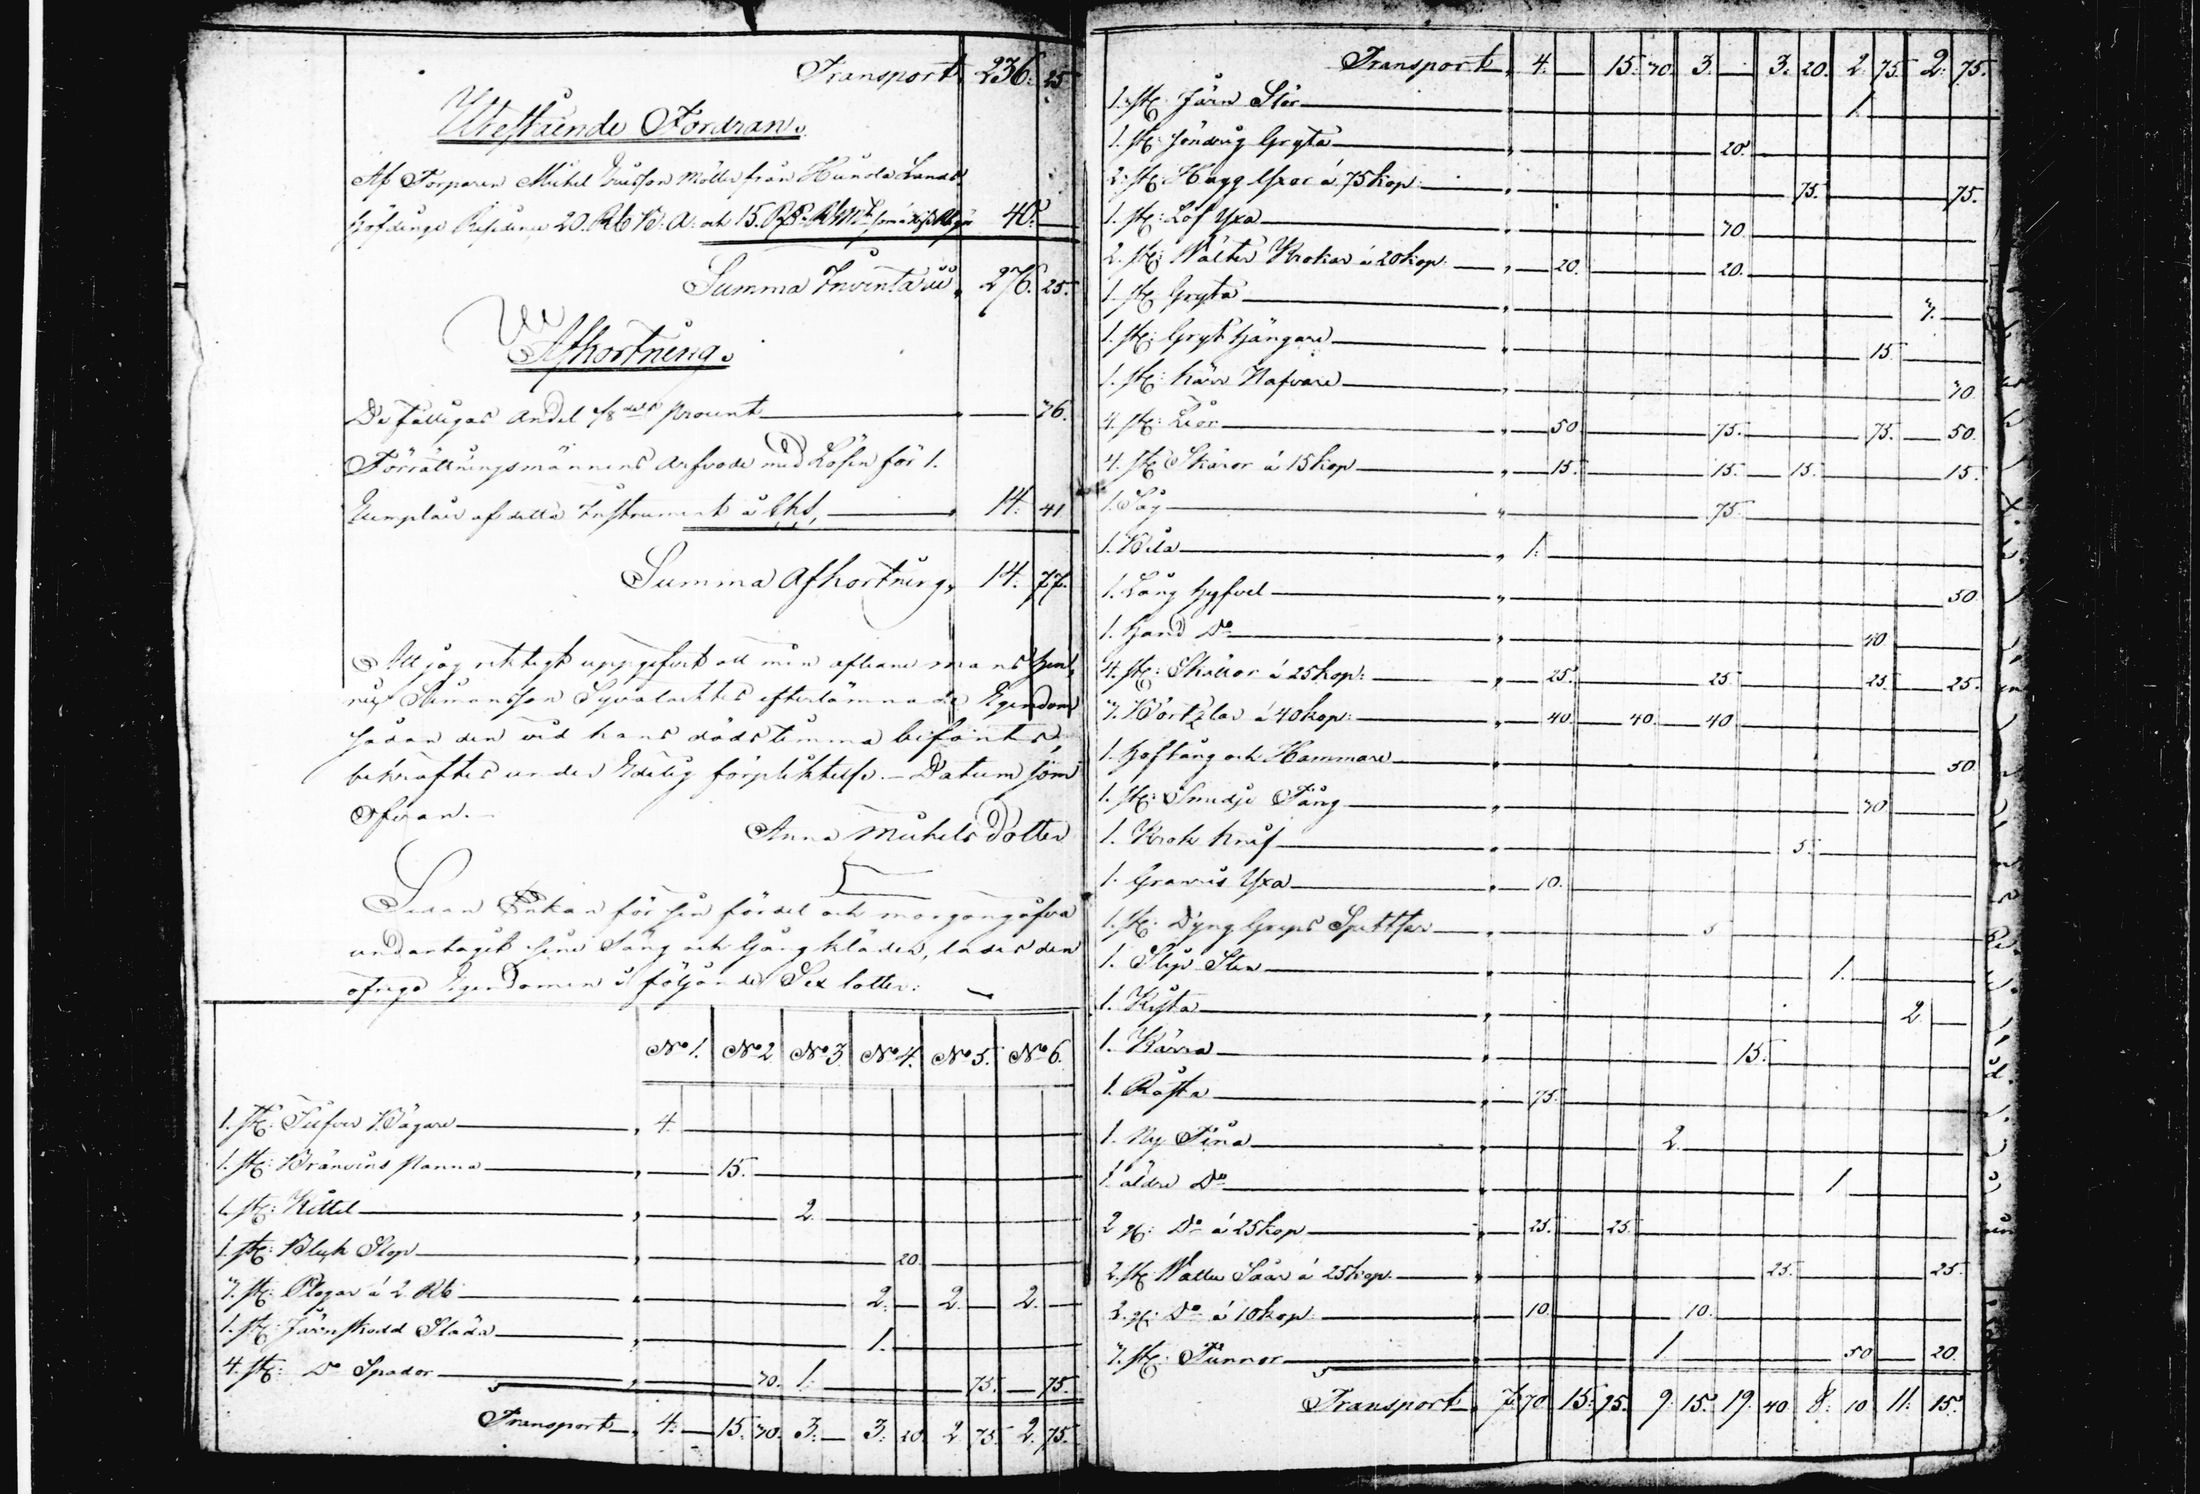 Transport 236. 25.
Utestående Fordran.
Af Torparen Michel Ericsson Möller från Hunola Lands-
höfdinge 20. Rb B: A: och 15. 40. —
Summa Inventarii, 276. 25.
Afkortning.
De fattigas andel 1/8 dels procent — 76.
Förrättningsmännens arfvode med Lösen för 1.
Exemplair af detta Instrument 14. 41
Summa Afkortning, 14. 77.
Att jag riktigt uppgifvit all min aflidne mans Hen-
rich Simonsson efterlämnade Egendom
sådan den vid hans dödstimma befants,
bekräftes under Edelig förpliktelse. — Datum som
ofvan. —
Anna Michels Dotter
Sedan Enkan för sin fördel och morgongåfva
undantagit sine Säng och Gångkläder, lades den
öfriga Egendomen i följande Sex lotter:
No 1. No 2 No 3 No 4. No 5. No 6.
1. st: Silfver Bägare — 4.
1. st: Bränvins Panna — 15.
1. st: Kittel — 2.
1. st: Bleck Stop — 20.
3. st: Plogar á 2 Rb — 2. — 2. — 2. —
1. st: Järnskodd Släda — 1.
4. st: Do Spador — 70. 1. — 75. — 75.
Transport, 4. — 15. 70. 3. — 3. 20. 2. 75. 2. 75.
Transport, 4. — 15. 70. 3. — 3. 20. 2. 75. 2. 75.
1. st: Järn Stör — 1.
1. st: Söndrig Gryta — 20.
2. st: Hugg Yxor á 75 kop: — 75. — 75.
1. st: Löf Yxa — 70.
2. st: Krokar á 20 kop: — 20. — 20.
1. st: Gryta — 3. —
1. st: Gryt hängare — 15.
1. st: Nafvare — 70
4. st: Liar — 50. — 75. — 75. — 50.
4. st: Skäror á 15 kop — 15. — 15. — 15. — 15.
1. Såg — 75.
1. Bila — 1.
1. Lång hyfvel — 50.
1. Hand Do — 40
4. st: Skällor á 25 kop: — 25. — 25. — 25. — 25.
3. á 40 kop: — 40. — 40. — 40
1. Hoftång och Hammare — 50.
1. st: Smedje Tång — 70.
1. Krok Knif — 5.
1. Yxa — 10.
1. st: Dyng Greps — 5
1. Slip Sten — 1.
1. Kista — 2. —
1. Kärra — 15.
1. — 75.
1. Ny Tina — 2.
1. äldre Do — 1
2 st: Do á 25 kop — 25. — 25.
2. st: Watten Såar á 25 kop. — 25. — 25.
2. st: Do á 10 kop. — 10. — 10.
3. st: Tunnor — 1. — 50 — 20.
Transport, 7. 70 15. 95. 9. 15. 19. 40 8. 10 11. 15.